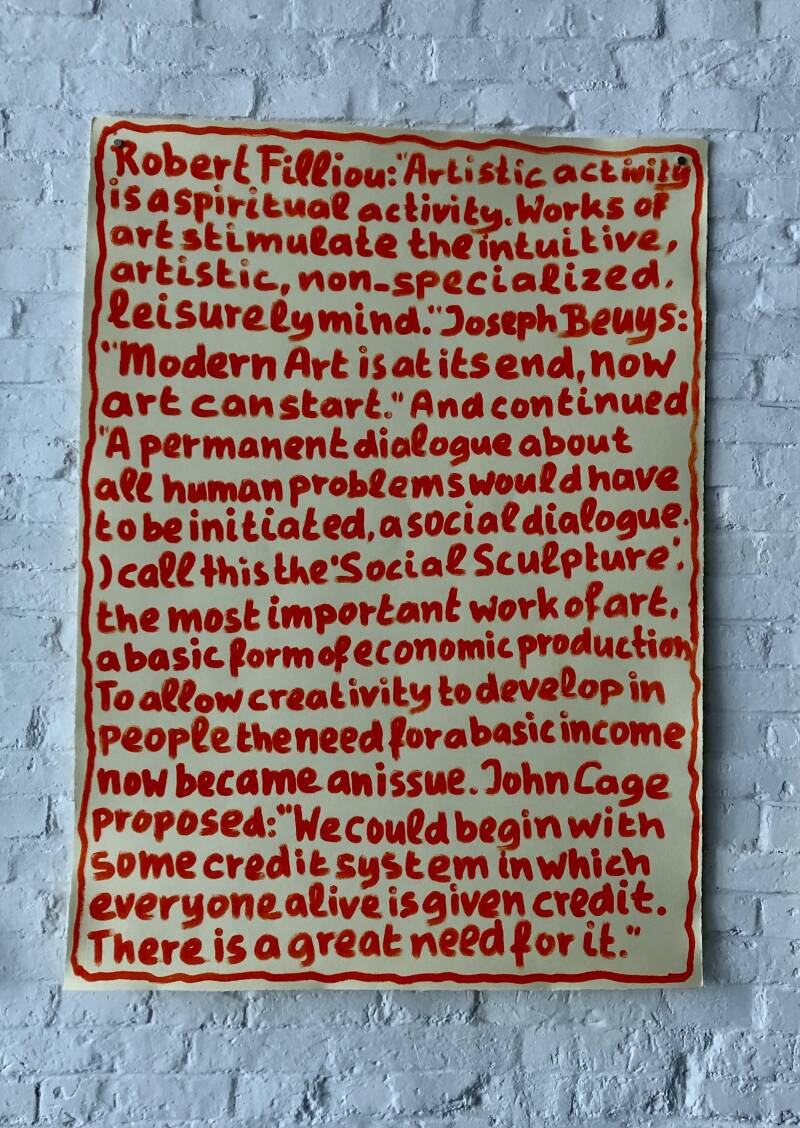 Robert Filliou: "Artistic activity
is a spiritual activity. Works of
art stimulate the intuitive,
artistic, non-specialized,
leisurely mind." Joseph Beuys:
"Modern Art is at its end, now
art can start." And continued
"A permanent dialogue about
all human problems would have
to be initiated, a social dialogue.
I call this the 'Social Sculpture',
the most important work of art,
a basic form of economic production,
To allow creativity to develop in
people the need for a basic income
now became an issue. John Cage
proposed: "We could begin with
some credit system in which
everyone alive is given credit.
There is a great need for it."